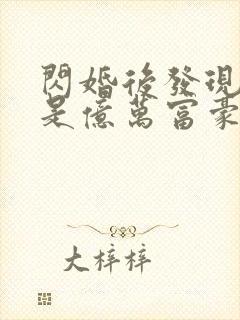 閃婚後發現
是億萬富豪
大梓梓